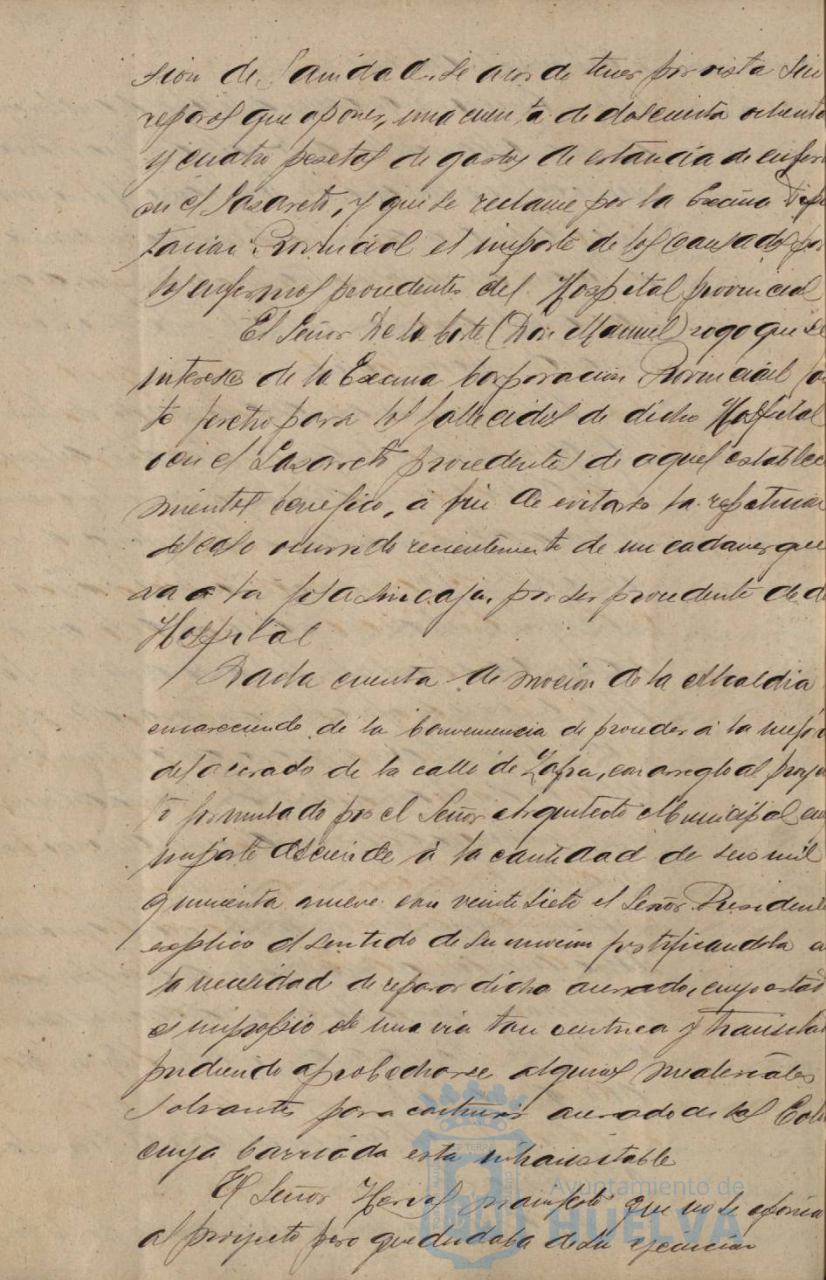 sion de Sanidad, se acordo tener por vista sin
reparos que oponer, una cuenta de doscienta ochenta
y cuatro pesetas de gastos de estancia de enfer
en el Lazareto, y que se reclame por la Excma Dipu
tacion Provincial el importe de los causados por
los enfermos procedentes del Hospital provincial
El Señor De la Corte (Don Manuel) rogo que se
interese de la Excma Corporacion Provincial
to feretro para los fallecidos de dicho Hospital
o en el Lazareto procedentes de aquel estableci
mientos benefico, á fin de evitarse la repeticion
del caso ocurrido recientemente de un cadaver que
va a la fosa sin caja, por ser procedente de d
Hospital
Dada cuenta de mocion de la Alcaldia
encareciendo de la conveniencia de proceder á la mejora
del acerado de la calle de Zafra, con arreglo al proyec
to formulado por el Señor Arquitecto Municipal cuyo
importe asciende á la cantidad de seis mil
quinienta nueve con veinte siete el Señor Presidente
esplico el sentido de su mocion justificandola
la necesidad de reparar dicho acerado, cuyo estado
es impropio de una via tan centrica y transita
pudiendo aprobecharse algunos materiales
sobrantes para construir acerado de las Col
cuya barriada esta intransitable
El Señor Hervas manifestó que no se oponia
al proyecto pero que dudaba de su ejecucion
Ayuntamiento de
HUELVA